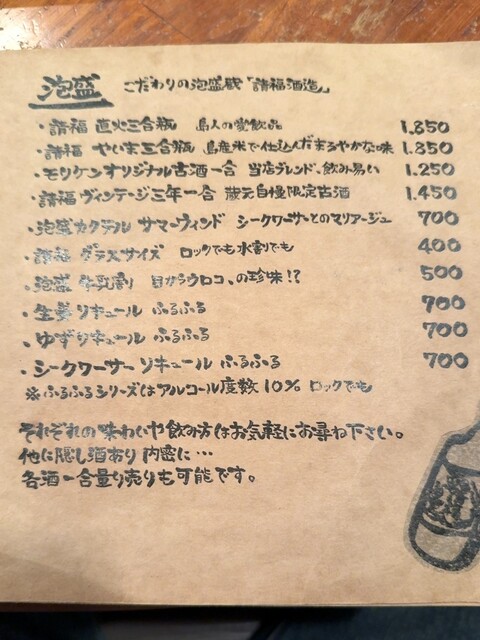 泡盛 こだわりの泡盛蔵「請福酒造」
・請福 直火三合瓶 島人の常飲品 1.850
・請福 やいま三合瓶 島産米で仕込んだまろやかな味 1.850
・モリケンオリジナル古酒一合 当店ブレンド、飲み易い 1.250
・請福 ヴィンテージ三年一合 蔵元自慢限定古酒 1.450
・泡盛カクテル サマーウィンド シークワーサーとのマリアージュ 700
・請福 グラスサイズ ロックでも水割でも 400
・泡盛 牛乳割 目からウロコ、の珍味!? 500
・生姜リキュール ふるふる 700
・ゆずリキュール ふるふる 700
・シークワーサーリキュール ふるふる 700
※ふるふるシリーズはアルコール度数10% ロックでも
それぞれの味わいや飲み方はお気軽にお尋ね下さい。
他に隠し酒あり 内密に…
各酒一合量り売りも可能です。